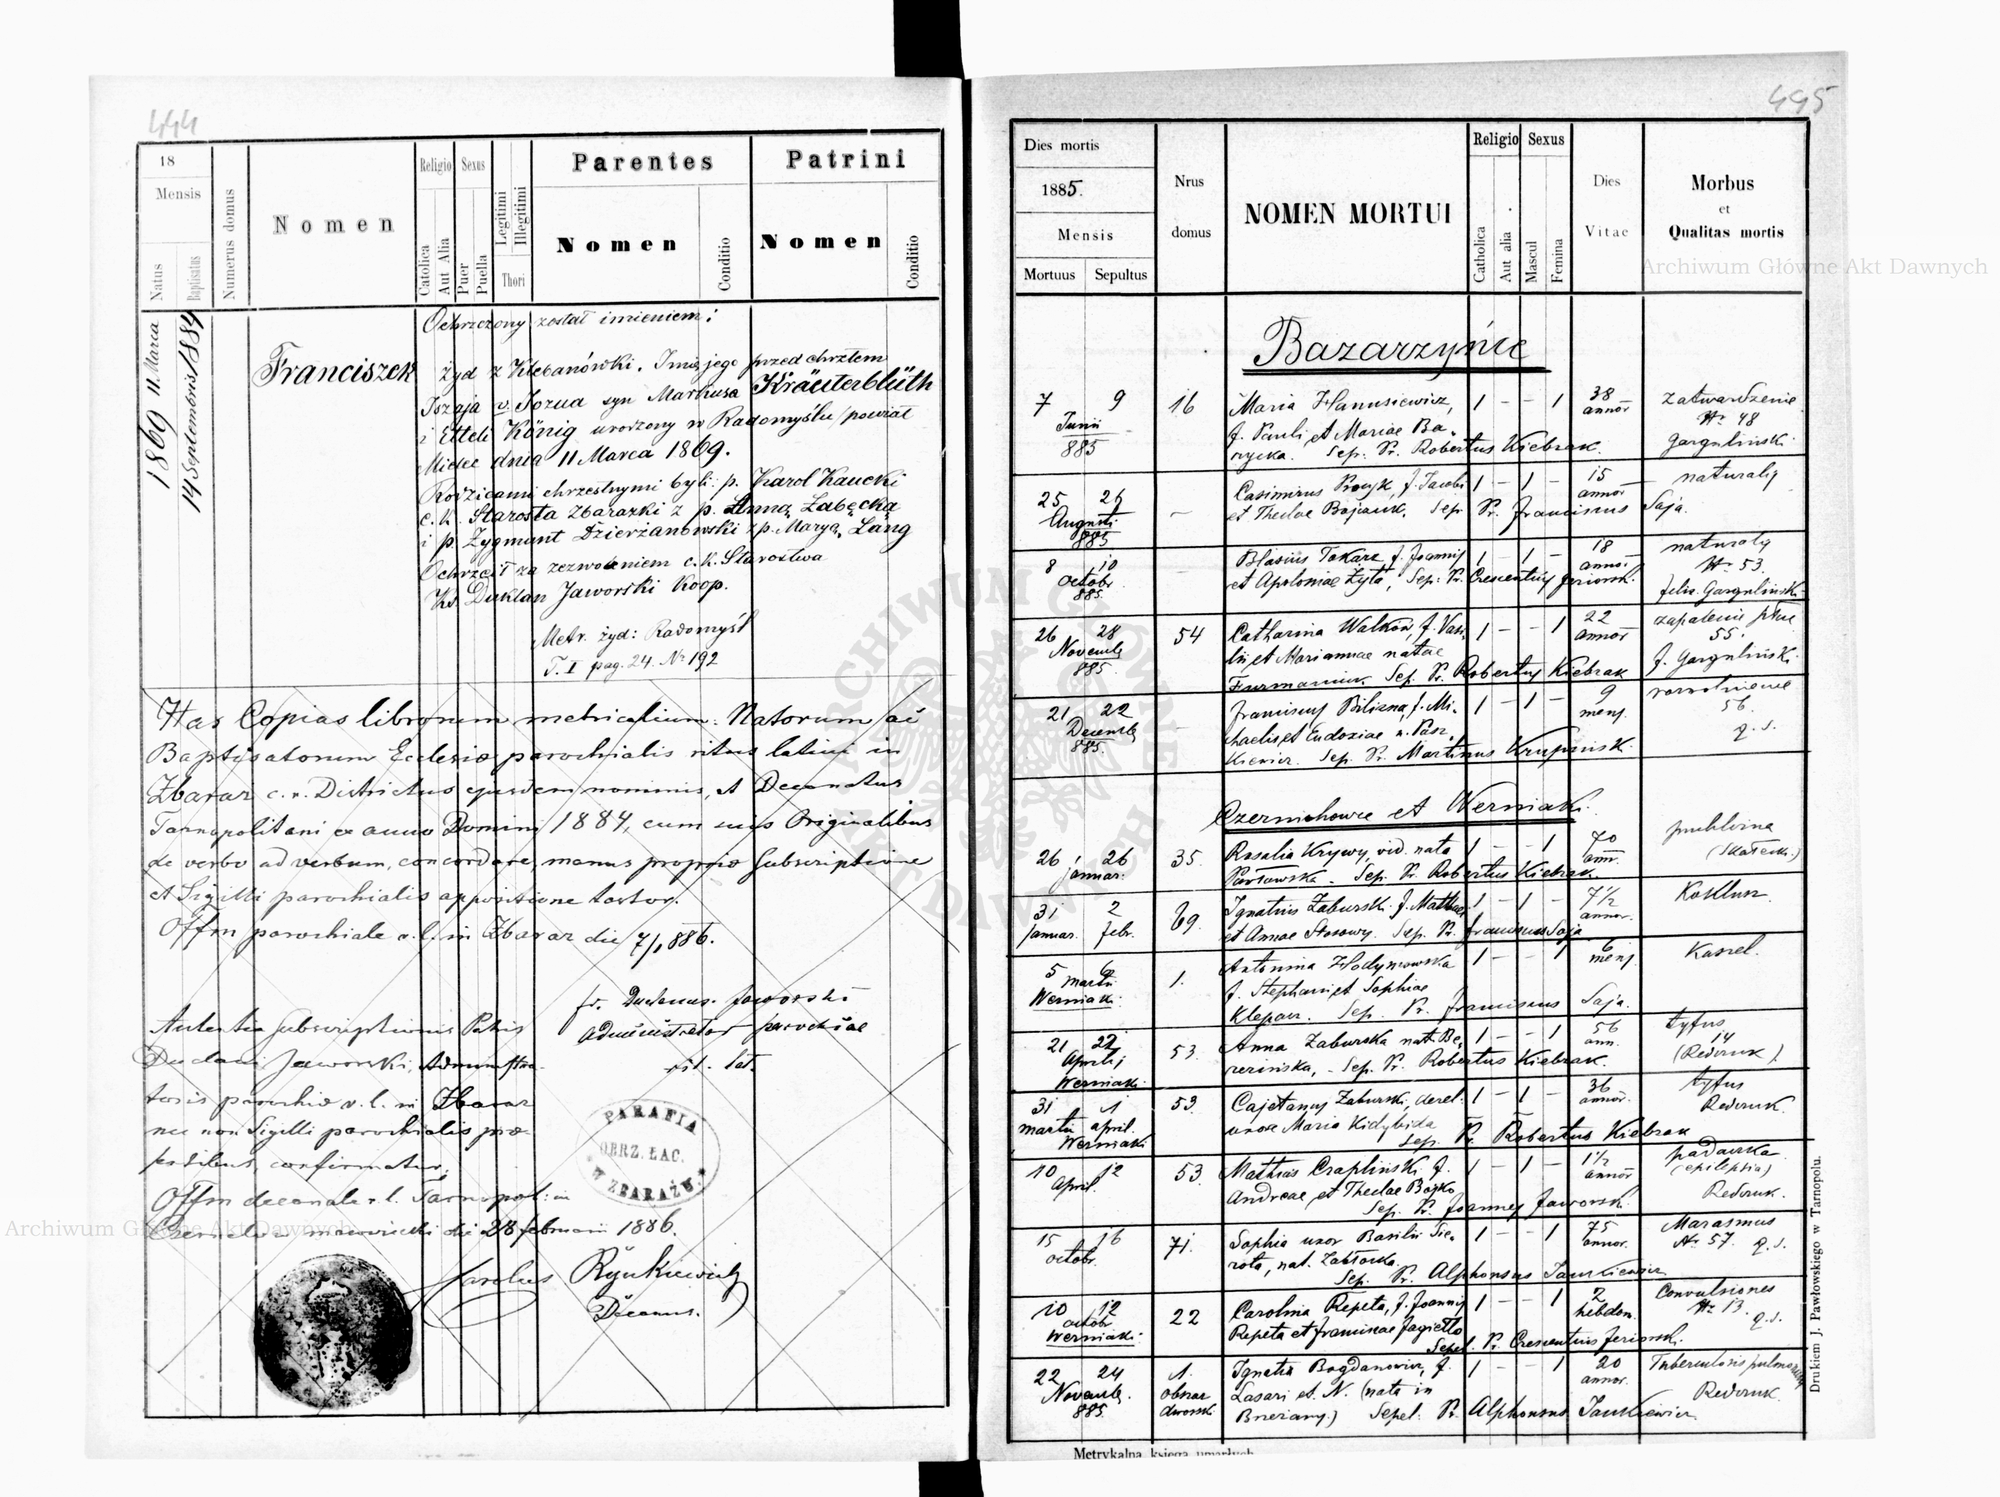 444
18
Mensis
Natus
Baptisatus
Numerus domus
Nomen
Religio
Catolica
Aut Alia
Sexus
Puer
Puella
Legitimi
Illegitimi
Thori
Parentes
Nomen
Conditio
Patrini
Nomen
Conditio
1869 11 Marca
14 Septembris 1884
Franciszek
Ochrzczony został imieniem:
żyd z Klebanówki. Imię jego przed chrztem
Iszaja v. Jozua syn Markusa Kräuterblüth
i Etteli König urodzony w Radomyślu /powiat
Mielec dnia 11 Marca 1869.
Rodzicami chrzestnymi byli: p. Karol Kaucki
c. k. Starosta Zbarazki z p. Anną Zabęcką
i p. Zygmunt Dzierżanowski z p. Maryą Lang
Ochrzcił za zezwoleniem c. k. Starostwa
Ks. Duklan Jaworski Koop.
Metr. żyd: Radomyśl
T. I pag. 24. Nr 192
Has Copias librorum metricalium Natorum ac
Baptisatorum Ecclesiæ parochialis ritus latini in
Zbaraz c. r. Districtus ejusdem nominis, et Decanatus
Tarnopolitani ex anno Domini 1884, cum suis Originalibus
de verbo ad verbum, concordare, manus propriæ subscriptione
et Sigilli parochialis appositione testor.
Offm parochiale r. l. in Zbaraz die 7/1 886.
fr. Duclanus Jaworski
Administrator parochiæ
rit. lat.
Autentia subscriptionis Patris
Duclani Jaworski, Administra-
toris parochiæ r. l. in Zbaraz
nec non Sigilli parochialis præ-
sentibus, confirmatur.
Offm decanale r. l. Tarnopol: in
die 28 februarii 1886.
PARAFIA
OBRZ. ŁAC.
W ZBARAŻU.
Carolus Rynkiewicz
Decanus.
495
Dies mortis
1885.
Mensis
Mortuus
Sepultus
Nrus
domus
NOMEN MORTUI
Religio
Catholica
Aut alia
Sexus
Mascul
Femina
Dies
Vitae
Morbus
et
Qualitas mortis
Bazarzyńce
7 9 16 Maria Hanusiewicz, 1 – – 1 38 zatwardzenie
Junii f. Pauli et Mariae Ba- annor Nr 48
885 rycka. Sep: Pr. Robertus Kiebzak. Gargulinski
25 26 – Casimirus f. Jacobi 1 – 1 – 15 naturalią
Augusti et Theclae Bojaniuk, Sep. Pr. Franciscus Saja. annor
885
8 10 Blasius Tokarz f. Joannis 1 – 1 – 18 naturalią
octobr et Apolomae Zyta, Sep: Pr. Crescentius annor Nr 53
885. Gargulinski
26 28 54 Catharina Walków, f. Vasi- 1 – – 1 22 zapalenie płuc
Novemb lii, et Mariannae natae annor 55
885 Sep. Pr. Robertus Kiebzak f. Gargulinski.
21 22 – Franciscus Bilizna, f. Mi- 1 – 1 – 9 rozwolnienie
Decemb chaelis, et Eudoxiae n. Pasz- mens. 56.
885. kiewicz. Sep. Pr. Martinus q. s.
Czernichowce et Werniaki.
26 26 35. Rosalia Krywy, vid. nata 1 – – 1 70 puchlina
Januar: Pawłowska. Sep. Pr. Robertus Kiebzak. ann.
31 2 69. Ignatius Zaburski f. Mathaei 1 – 1 – 7½ Koklusz
Januar. febr. et Annae Sep. Pr. Franciscus Saja annor.
5 6 1. Antonina Hodynowska 1 – – 1 6 Kaszel.
martii f. Stephani et Sophiae mens
Werniaki. Klepacz. Sep. Pr. Franciscus Saja.
21 22 53. Anna Zaburska nat. Be- 1 – – 1 56 tyfus
Aprilis rezińska, Sep. Pr. Robertus Kiebzak. ann. 14
Werniaki. (Redczuk).
31 1 53. Cajetanus Zaburski, derel. 1 – 1 – 36 tyfus
martii april. uxor Maria Kidybida annor. Redczuk.
Werniaki Sep. Pr. Robertus Kiebzak
10 12 53. Mathias Czapliński f. 1 – 1 – 1½ padaczka
April. Andreae et Theclae Bojko annor (epilepsia)
Sep. Pr. Joannes Jaworski. Redczuk.
15 16 71. Sophia uxor Basilii Sie- 1 – – 1 75 Marasmus
octobr. rota, nat. Zabłocka. annor. Nr 57. q. s.
Sep. Pr. Alphonsus Jankiewicz
10 12 22 Carolina Repeta, f. Joannis 1 – – 1 2 Convulsiones
octobr Repeta et Franciscae Jagiełło hebdom. Nr 13.
Werniaki. Sepel. Pr. Crescentius q. s.
22 24 1. Ignatia Bogdanowicz, f. 1 – – 1 20 Tuberculosis pulmonum
Novemb. obszar Lasari et N. (nata in annor. Redczuk.
885. dworski. Brzeżany.) Sepel. Pr. Alphonsus Jankiewicz
Drukiem J. Pawłowskiego w Tarnopolu.
Metrykalna księga umarłych
Archiwum Główne Akt Dawnych
Archiwum Główne Akt Dawnych
ARCHIWUM GŁÓWNE AKT DAWNYCH